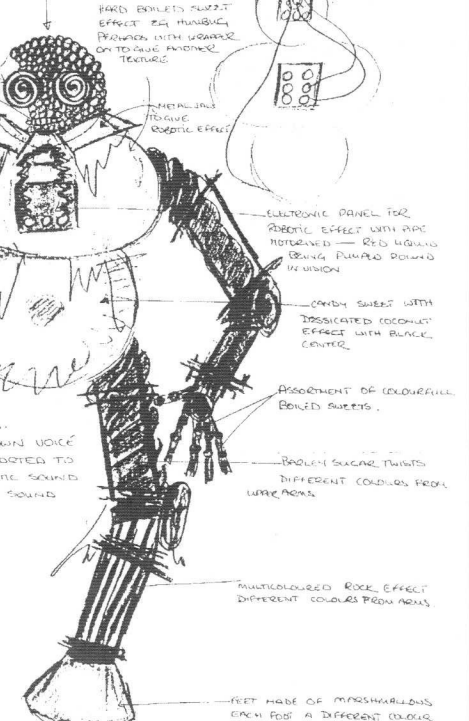 HARD BOILED SWEET
EFFECT EG HUMBUG
PERHAPS WITH WRAPPER
ON TO GIVE ANOTHER
TEXTURE
METAL JAW
TO GIVE
ROBOTIC EFFECT
ELECTRONIC PANEL FOR
ROBOTIC EFFECT WITH PIPE
MOTORISED — RED LIQUID
BEING PUMPED ROUND
IN VISION
CANDY SWEET WITH
DESSICATED COCONUT
EFFECT WITH BLACK
CENTER
ASSORTMENT OF COLOURFULL
BOILED SWEETS.
OWN VOICE
ORTED TO
TIC SOUND
SOUND
BARLEY SUGAR TWISTS
DIFFERENT COLOURS FROM
UPPER ARMS
MULTICOLOURED ROCK EFFECT
DIFFERENT COLOURS FROM ARMS.
FEET MADE OF MARSHMALLOWS
EACH FOOT A DIFFERENT COLOUR